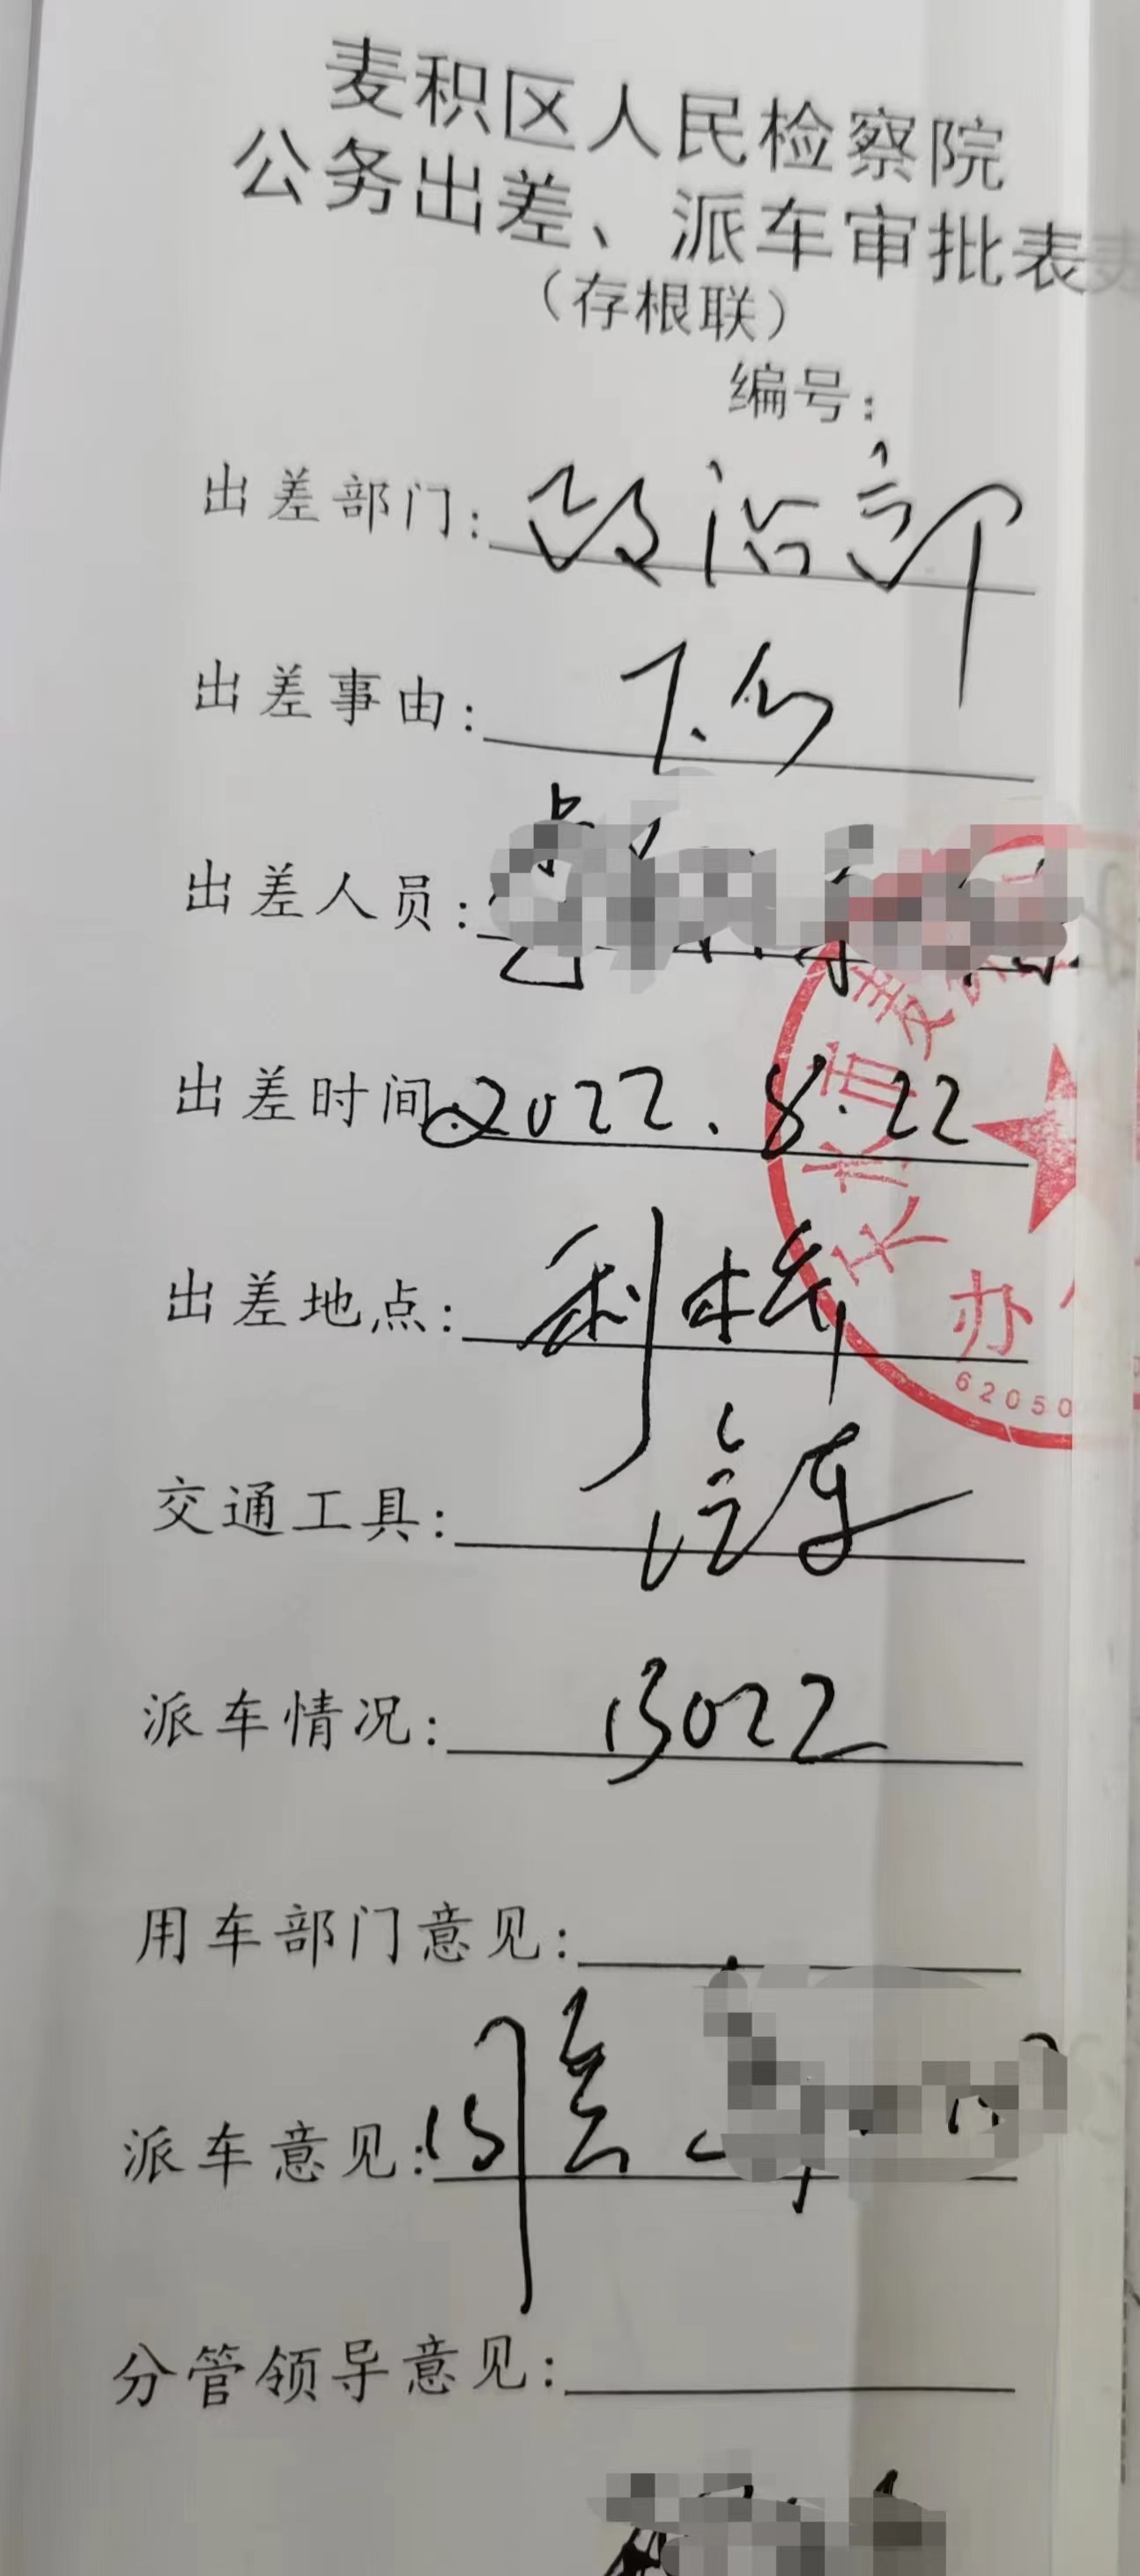 麦积区人民检察院
公务出差、派车审批表
（存根联）
编号：
出差部门：政治部
出差事由：下乡
出差人员：
出差时间：2022.8.22
出差地点：利桥
交通工具：汽车
派车情况：B022
用车部门意见：
派车意见：同意
分管领导意见：
天水市麦
办
62050